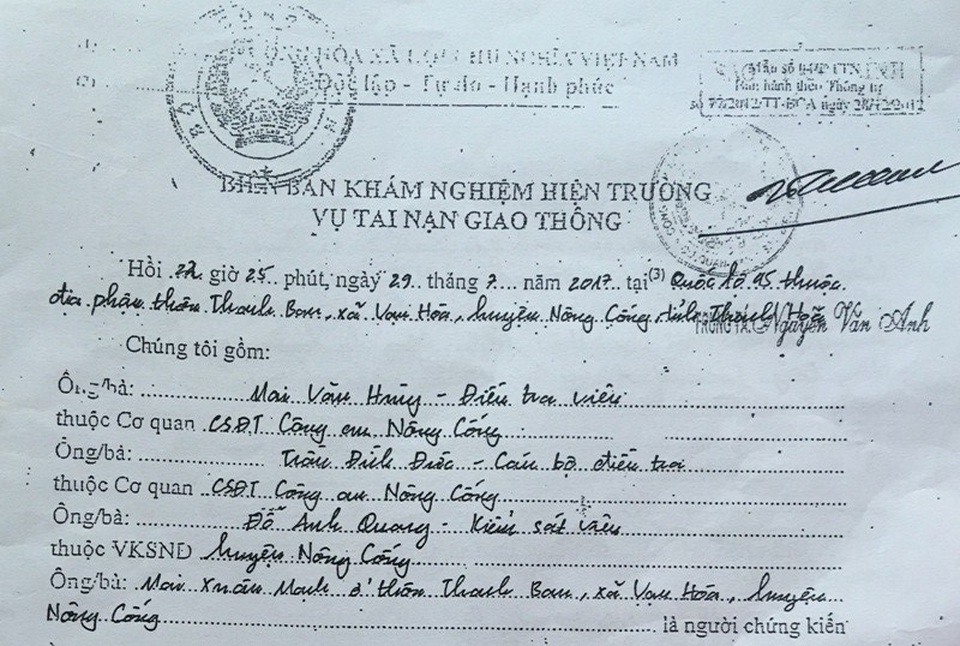 CỘNG HÒA XÃ HỘI CHỦ NGHĨA VIỆT NAM
Độc lập - Tự do - Hạnh phúc
Mẫu số
Ban hành theo Thông tư
số 77/2012/TT-BCA ngày 28/12/2012
BIÊN BẢN KHÁM NGHIỆM HIỆN TRƯỜNG
VỤ TAI NẠN GIAO THÔNG
Hồi 22 giờ 25 phút, ngày 29 tháng 7 năm 2017 tại (3) Quốc lộ 45 thuộc
địa phận thôn Thanh Ban, xã Vạn Hòa, huyện Nông Cống tỉnh Thanh Hoá
TRUNG TÁ: Nguyễn Văn Anh
Chúng tôi gồm:
Ông/bà: Mai Văn Hùng - Điều tra viên
thuộc Cơ quan CSĐT Công an Nông Cống
Ông/bà: Trần Đình Đức - Cán bộ điều tra
thuộc Cơ quan CSĐT Công an Nông Cống
Ông/bà: Đỗ Anh Quang - Kiểm sát viên
thuộc VKSND huyện Nông Cống
Ông/bà: Mai Xuân Mạnh ở thôn Thanh Ban, xã Vạn Hòa, huyện
Nông Cống là người chứng kiến